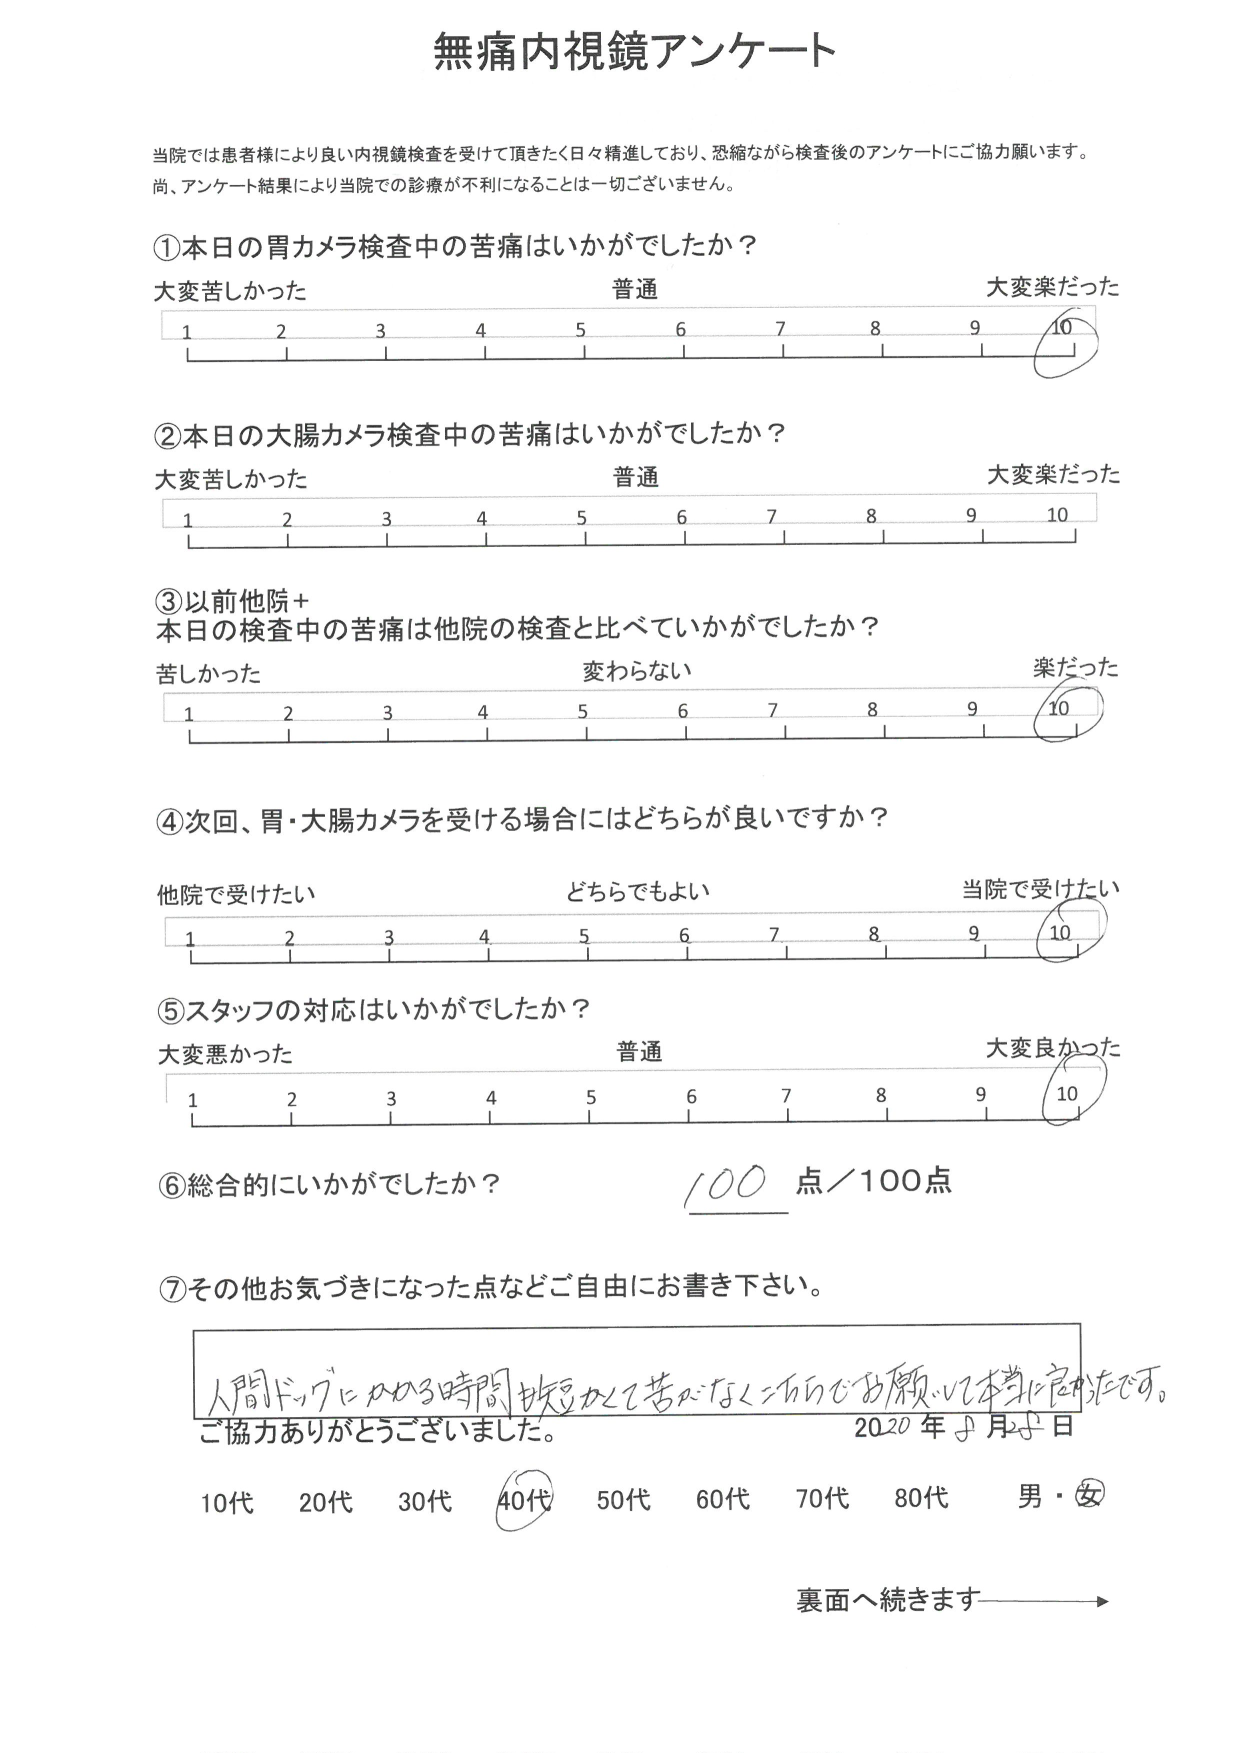 無痛内視鏡アンケート
当院では患者様により良い内視鏡検査を受けて頂きたく日々精進しており、恐縮ながら検査後のアンケートにご協力願います。
尚、アンケート結果により当院での診療が不利になることは一切ございません。
①本日の胃カメラ検査中の苦痛はいかがでしたか？
大変苦しかった 普通 大変楽だった
1 2 3 4 5 6 7 8 9 10
②本日の大腸カメラ検査中の苦痛はいかがでしたか？
大変苦しかった 普通 大変楽だった
1 2 3 4 5 6 7 8 9 10
③以前他院+
本日の検査中の苦痛は他院の検査と比べていかがでしたか？
苦しかった 変わらない 楽だった
1 2 3 4 5 6 7 8 9 10
④次回、胃・大腸カメラを受ける場合にはどちらが良いですか？
他院で受けたい どちらでもよい 当院で受けたい
1 2 3 4 5 6 7 8 9 10
⑤スタッフの対応はいかがでしたか？
大変悪かった 普通 大変良かった
1 2 3 4 5 6 7 8 9 10
⑥総合的にいかがでしたか？ 100 点／100点
⑦その他お気づきになった点などご自由にお書き下さい。
人間ドッグにかかる時間も短かくて苦がなくこちらでお願いして本当に良かったです。
ご協力ありがとうございました。 2020 年 8 月 28 日
10代 20代 30代 40代 50代 60代 70代 80代 男・女
裏面へ続きます